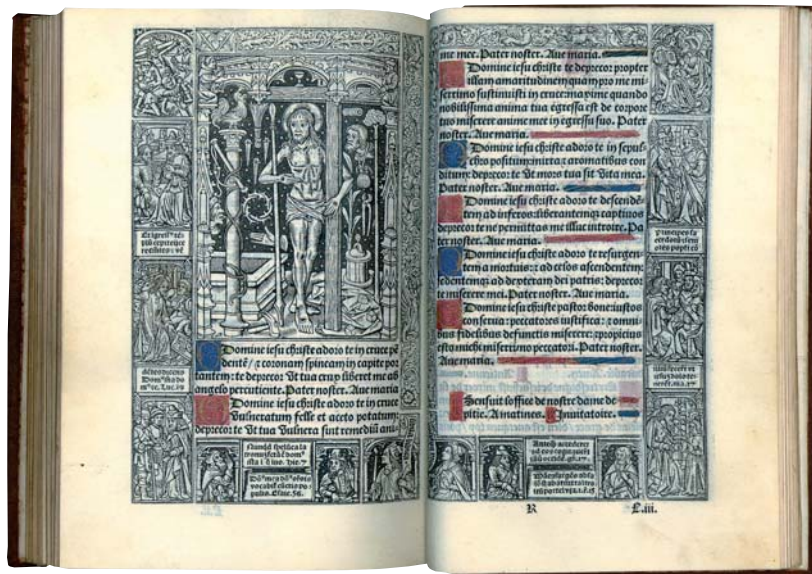 Domine iesu christe adoro te in cruce pē
dentē / ⁊ coronam spineam in capite por
tantem: te deprecor Ut tua crux liberet me ab
angelo percutiente. Pater noster. Aue maria
Domine iesu christe adoro te in cruce
vulneratum felle et aceto potatum:
deprecor te Ut tua vulnera sint remediū ani-
populis. Esaie. 56.
me mee. Pater noster. Aue maria.
Domine iesu christe te deprecor propter
illam amaritudinem quam pro me mi
serrimo sustinuisti in cruce: maxime quando
nobilissima anima tua egressa est de corpore
tuo miserere anime mee in egressu suo. Pater
noster. Aue maria.
Domine iesu christe adoro te in sepul
chro positum: mirra ⁊ aromatibus con
ditum: deprecor te Ut mors tua sit Vita mea.
Pater noster. Aue maria.
Domine iesu christe adoro te descendē
tem ad inferos: liberantemq captiuos
deprecor te ne permittas me illuc introire. Pa
ter noster. Aue maria.
Domine iesu christe adoro te resurgen
tem a mortuis: ⁊ ad celos ascendentem:
sedentemq ad dexteram dei patris: deprecor
te miserere mei. Pater noster. Aue maria.
Domine iesu christe pastor bone: iustos
conserua: peccatores iustifica: ⁊ omni
bus fidelibus defunctis miserere: ⁊ propicius
esto michi miserrimo peccatori. Pater noster.
Aue maria.
Sensuit loffice de nostre dame de
pitie. A matines. Inuitatoire.
R L.iii.